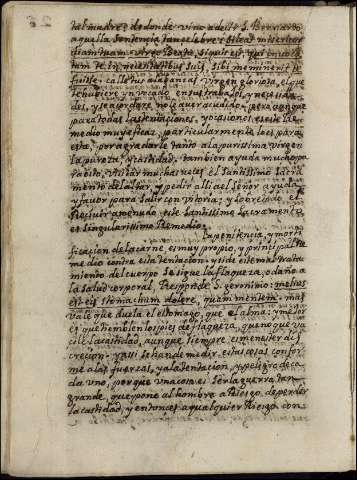 tal madre? de donde vino a decir S. Bernardo
aquella sentencia tan celebre: Sileat misericor
diam tuam virgo Beata, siquis est, qui invoca
tam te in necesitatibus suis, sibi meminerit de
fuisse. calle tus alabanças, virgen gloriosa, el que
te huviere invocado en sus trabajos, y necesida
des, y se acordare no le aver acudido. pero aunque
para todas las tentaciones, y ocasiones es este re
medio muy eficaz, particularmente lo es para
esta, por agradarle tanto a la purissima virgen
la pureza, y castidad. tambien ayuda mucho pa
ra esto, visitar muchas veces el santissimo sacra
mento del altar, y pedir alli al Señor ayuda,
y favor para salir con vitoria; y sobre todo el
Recivir amenudo este santissimo sacramento
es singularissimo Remedio.
La penitencia, y morti
ficacion de la carne, es muy propio, y principal Re
medio contra esta tentacion: y si de este mal trata
miento del cuerpo se sigue la flaqueza, o daño a
la salud corporal, Responde S. geronimo: melius
est eis stomacum dolere, quam mentem: mas
vale que duela el estomago, que el alma; y mejor
es que tiemblen los pies de flaqueza, que no que va
cile la castidad, aunque siempre es menester dis
crecion. y assi se han de medir estas cosas confor
me a las fuerzas, y a la tentacion, y peligro de ca
da uno, porque una cosa es ser la guerra tan
grande, que pone al hombre a Riesgo, de perder
la castidad, y entonces a qualquier Riesgo con